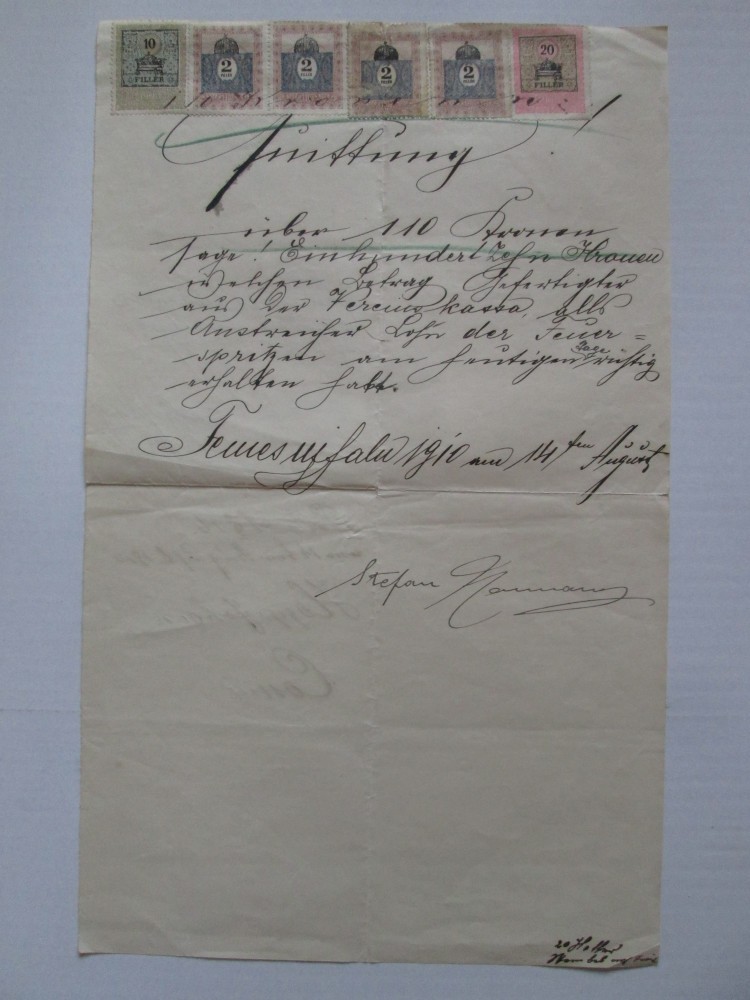 10 2 2 2 2 20
FILLÉR FILLÉR
Quittung!
über 110 Kronen
sage! Einhundert Zehn Kronen
welchen Betrag Gefertigter
aus der Vereinskassa, alls
Anstreicher Lohn der Feuer=
spritzen am heutigen Tage richtig
erhalten habe.
Temesujfalu 1910 am 14ten August
Stefan
20 Heller